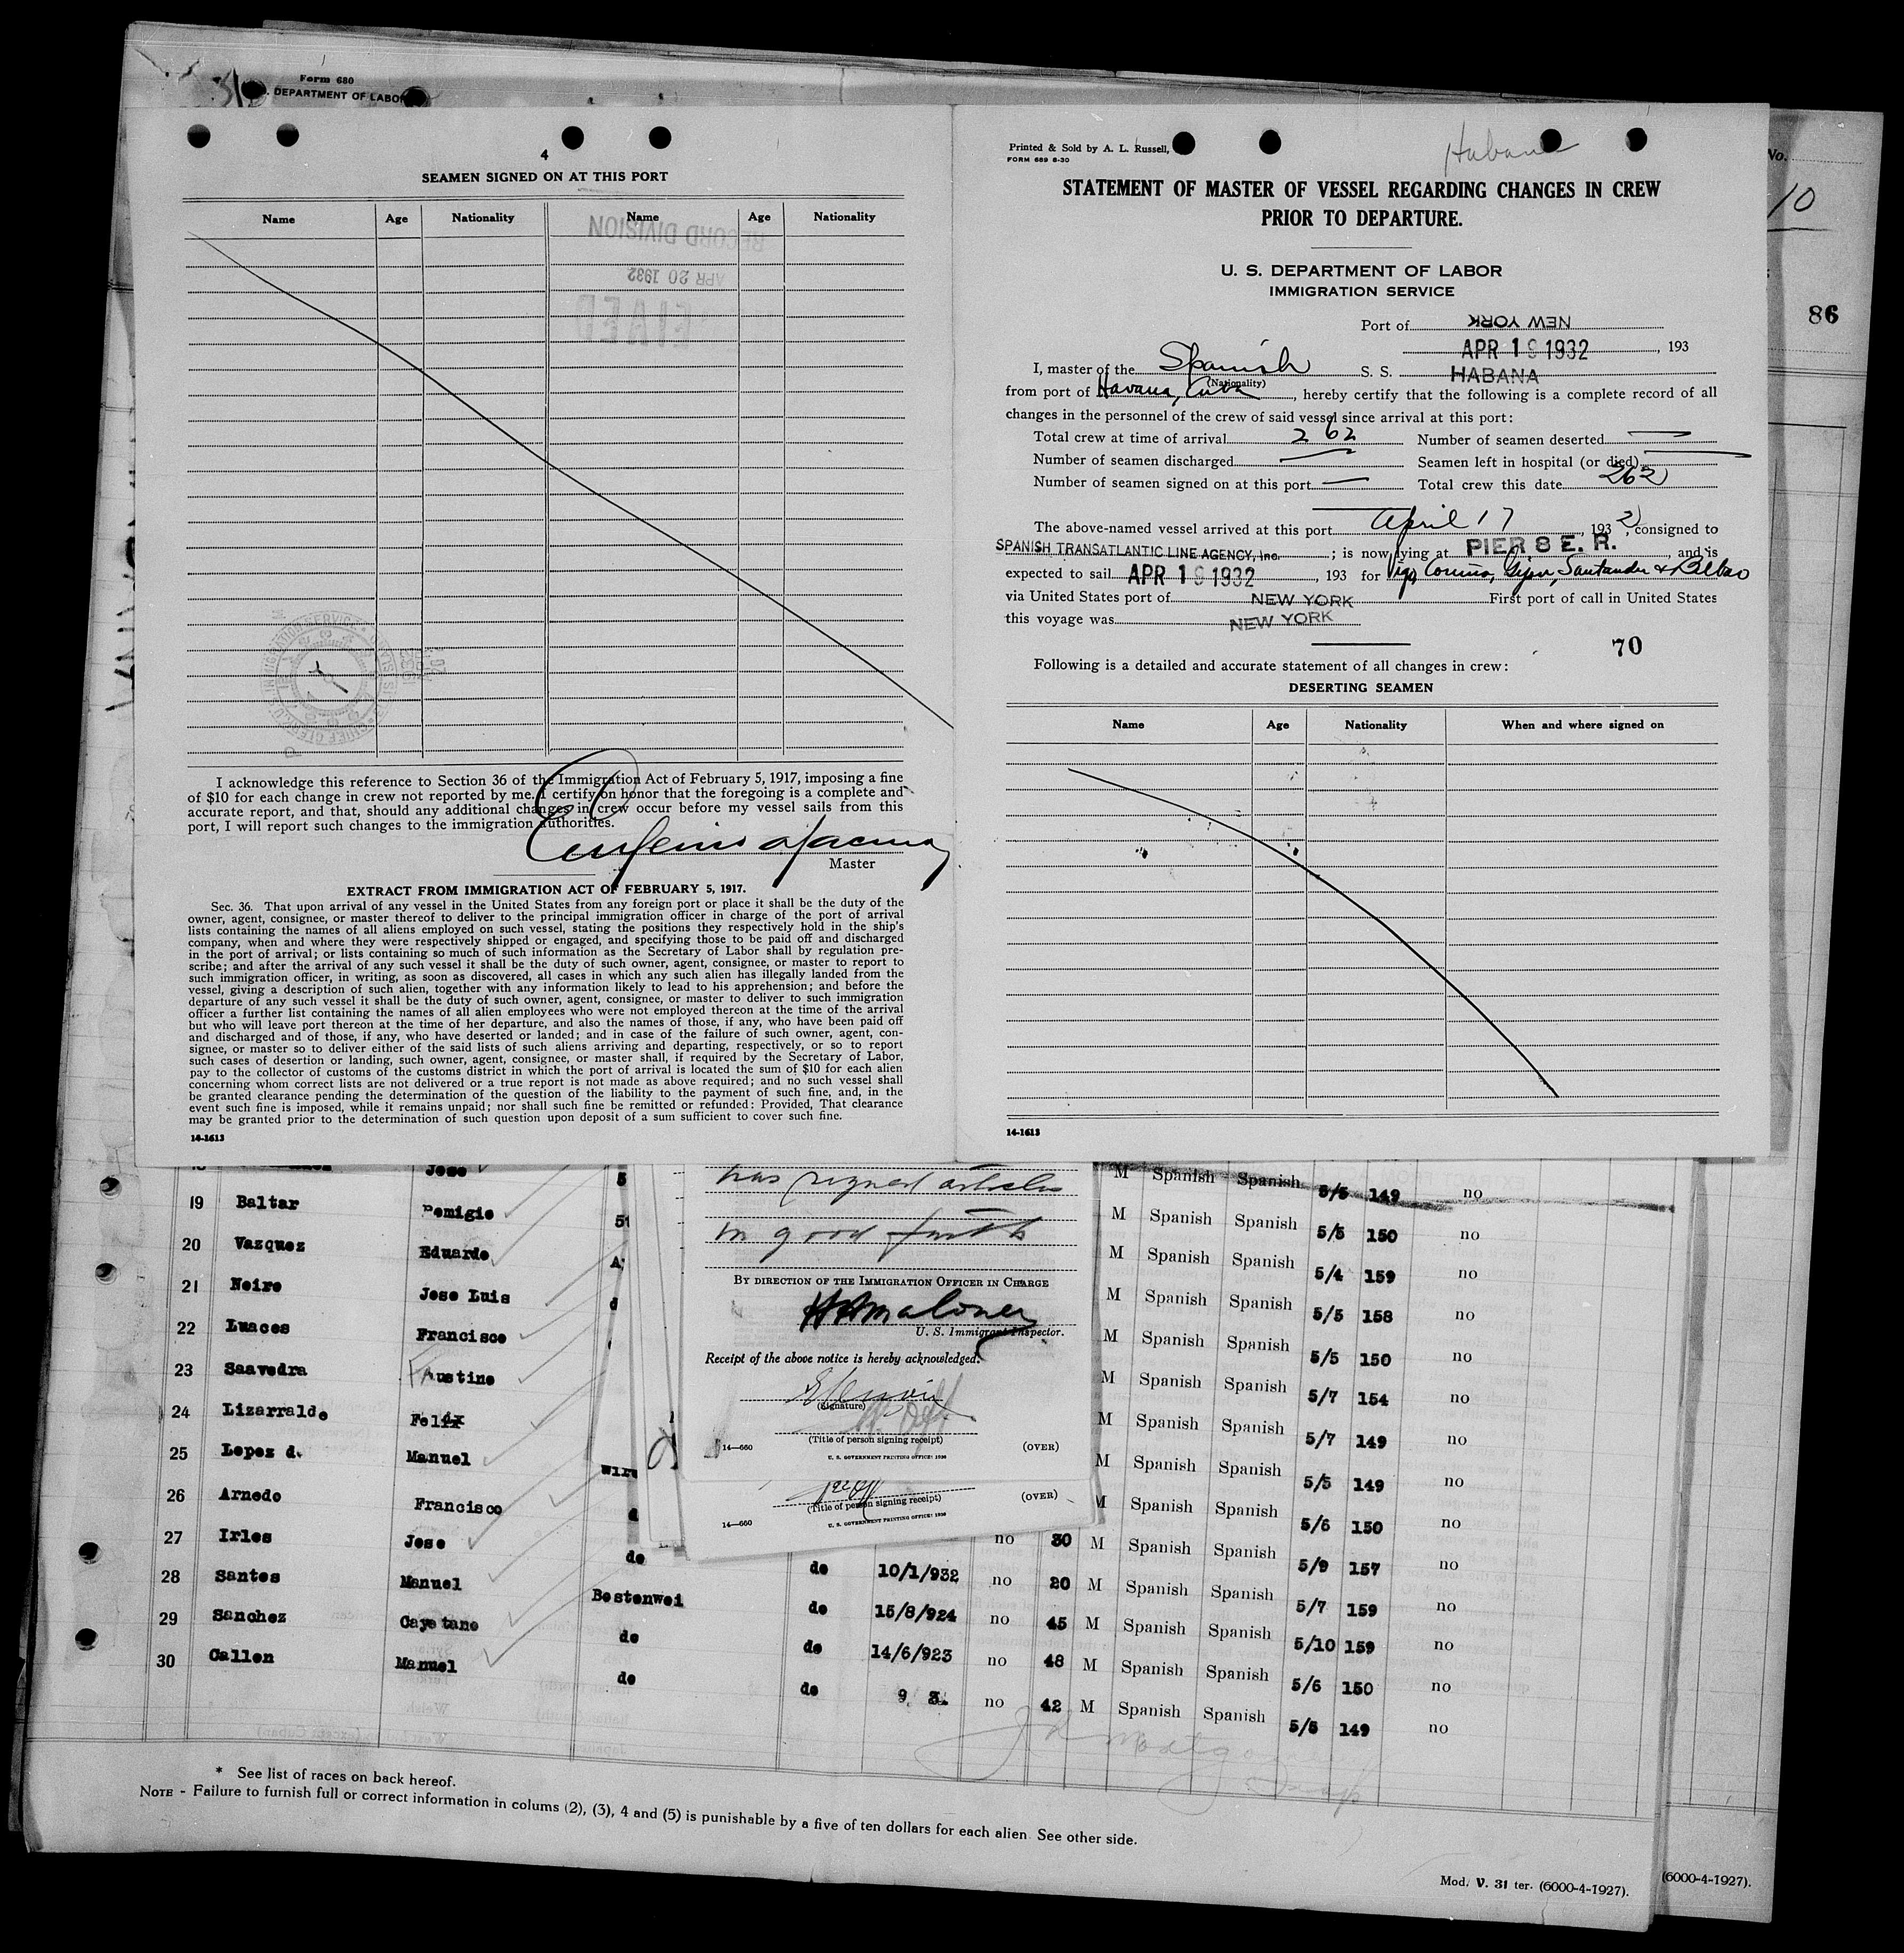 Form 680
DEPARTMENT OF LABOR
4
SEAMEN SIGNED ON AT THIS PORT
Name Age Nationality Name Age Nationality
RECORD DIVISION
APR 20 1932
I acknowledge this reference to Section 36 of the Immigration Act of February 5, 1917, imposing a fine
of $10 for each change in crew not reported by me. I certify on honor that the foregoing is a complete and
accurate report, and that, should any additional changes in crew occur before my vessel sails from this
port, I will report such changes to the immigration authorities.
Master
EXTRACT FROM IMMIGRATION ACT OF FEBRUARY 5, 1917.
Sec. 36. That upon arrival of any vessel in the United States from any foreign port or place it shall be the duty of the
owner, agent, consignee, or master thereof to deliver to the principal immigration officer in charge of the port of arrival
lists containing the names of all aliens employed on such vessel, stating the positions they respectively hold in the ship's
company, when and where they were respectively shipped or engaged, and specifying those to be paid off and discharged
in the port of arrival; or lists containing so much of such information as the Secretary of Labor shall by regulation pre-
scribe; and after the arrival of any such vessel it shall be the duty of such owner, agent, consignee, or master to report to
such immigration officer, in writing, as soon as discovered, all cases in which any such alien has illegally landed from the
vessel, giving a description of such alien, together with any information likely to lead to his apprehension; and before the
departure of any such vessel it shall be the duty of such owner, agent, consignee, or master to deliver to such immigration
officer a further list containing the names of all alien employees who were not employed thereon at the time of the arrival
but who will leave port thereon at the time of her departure, and also the names of those, if any, who have been paid off
and discharged and of those, if any, who have deserted or landed; and in case of the failure of such owner, agent, con-
signee, or master so to deliver either of the said lists of such aliens arriving and departing, respectively, or so to report
such cases of desertion or landing, such owner, agent, consignee, or master shall, if required by the Secretary of Labor,
pay to the collector of customs of the customs district in which the port of arrival is located the sum of $10 for each alien
concerning whom correct lists are not delivered or a true report is not made as above required; and no such vessel shall
be granted clearance pending the determination of the question of the liability to the payment of such fine, and, in the
event such fine is imposed, while it remains unpaid; nor shall such fine be remitted or refunded: Provided, That clearance
may be granted prior to the determination of such question upon deposit of a sum sufficient to cover such fine.
14-1613
Printed & Sold by A. L. Russell,
FORM 689 6-30
Habana
STATEMENT OF MASTER OF VESSEL REGARDING CHANGES IN CREW
PRIOR TO DEPARTURE.
U. S. DEPARTMENT OF LABOR
IMMIGRATION SERVICE
Port of NEW YORK
APR 19 1932, 193
I, master of the Spanish S. S. HABANA
(Nationality)
from port of Havana, Cuba, hereby certify that the following is a complete record of all
changes in the personnel of the crew of said vessel since arrival at this port:
Total crew at time of arrival 262 Number of seamen deserted —
Number of seamen discharged — Seamen left in hospital (or died) —
Number of seamen signed on at this port — Total crew this date 262
The above-named vessel arrived at this port April 17, 1932, consigned to
SPANISH TRANSATLANTIC LINE AGENCY, Inc.; is now lying at PIER 8 E. R., and is
expected to sail APR 19 1932, 193 for Vigo, Coruña, Gijon, Santander & Bilbao
via United States port of NEW YORK First port of call in United States
this voyage was NEW YORK
70
Following is a detailed and accurate statement of all changes in crew:
DESERTING SEAMEN
Name Age Nationality When and where signed on
14-1613
No.
10
86
Jose 5 M Spanish Spanish 5/5 149 no
19 Baltar Remigio M Spanish Spanish 5/5 150 no
20 Vazquez Eduardo M Spanish Spanish 5/4 159 no
21 Neiro Jose Luis M Spanish Spanish 5/5 158 no
22 Luaces Francisco M Spanish Spanish 5/5 150 no
23 Saavedra Faustino M Spanish Spanish 5/7 154 no
24 Lizarralde Felix M Spanish Spanish 5/7 149 no
25 Lopez d. Manuel M Spanish Spanish 5/5 149 no
26 Arnedo Francisco M Spanish Spanish 5/6 150 no
27 Irles Jose do no 30 M Spanish Spanish 5/9 157 no
28 Santos Manuel Bostonwei do 10/1/932 no 20 M Spanish Spanish 5/7 159 no
29 Sanchez Cayetano do do 15/8/924 no 45 M Spanish Spanish 5/10 159 no
30 Callon Manuel do do 14/6/923 no 48 M Spanish Spanish 5/6 150 no
do 9 3. no 42 M Spanish Spanish 5/5 149 no
has signed articles
in good faith
BY DIRECTION OF THE IMMIGRATION OFFICER IN CHARGE
U. S. Immigrant Inspector.
Receipt of the above notice is hereby acknowledged.
(Signature)
(Title of person signing receipt)
14—660 (OVER)
U. S. GOVERNMENT PRINTING OFFICE: 1930
(Title of person signing receipt)
(OVER)
14—660
U. S. GOVERNMENT PRINTING OFFICE: 1930
* See list of races on back hereof.
NOTE - Failure to furnish full or correct information in colums (2), (3), 4 and (5) is punishable by a five of ten dollars for each alien See other side.
Mod. V. 31 ter. (6000-4-1927).
(6000-4-1927).